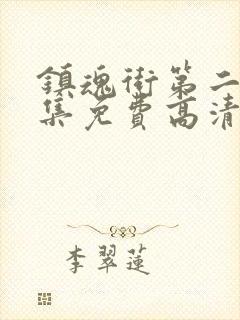 鎮魂街第二
集免費高清
李翠蓮